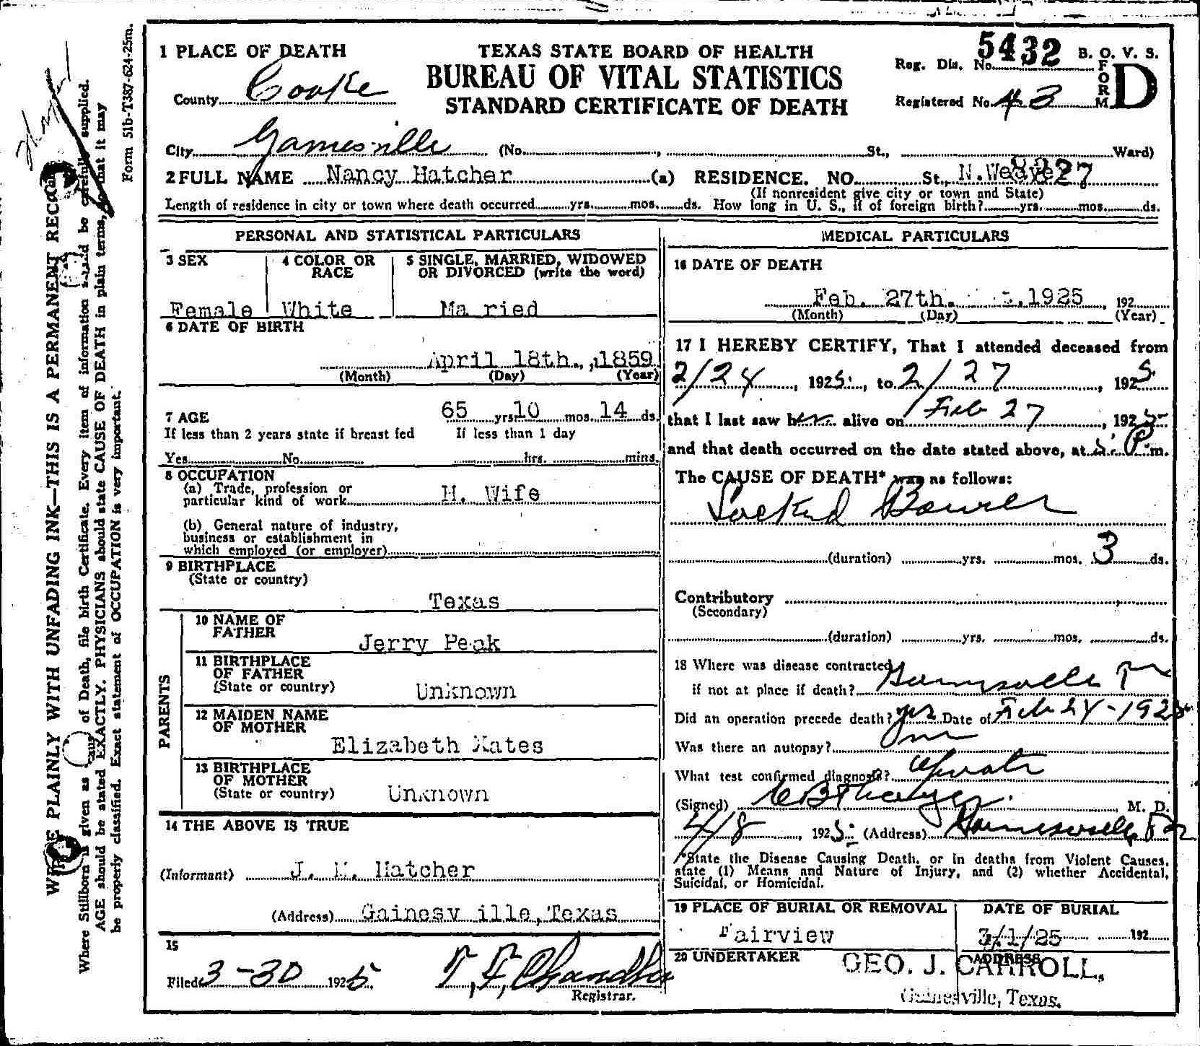 1 PLACE OF DEATH
TEXAS STATE BOARD OF HEALTH
BUREAU OF VITAL STATISTICS
STANDARD CERTIFICATE OF DEATH
Reg. Dis. No. 5432 B. O. V. S.
Registered No. 43 FORM D
County Cooke
City Gainesville (No. , St., Ward)
2 FULL NAME Nancy Hatcher (a) RESIDENCE. NO. St., N.Weaver
(If nonresident give city or town and State)
Length of residence in city or town where death occurred yrs. mos. ds. How long in U. S., if of foreign birth? yrs. mos. ds.
PERSONAL AND STATISTICAL PARTICULARS
3 SEX
Female
4 COLOR OR RACE
White
5 SINGLE, MARRIED, WIDOWED
OR DIVORCED (write the word)
Ma ried
6 DATE OF BIRTH
April 18th., 1859
(Month) (Day) (Year)
7 AGE
65 yrs 10 mos. 14 ds.
If less than 2 years state if breast fed If less than 1 day
Yes No hrs. mins.
8 OCCUPATION
(a) Trade, profession or
particular kind of work H. Wife
(b) General nature of industry,
business or establishment in
which employed (or employer)
9 BIRTHPLACE
(State or country)
Texas
PARENTS
10 NAME OF
FATHER
Jerry Peak
11 BIRTHPLACE
OF FATHER
(State or country) Unknown
12 MAIDEN NAME
OF MOTHER
Elizabeth Kates
13 BIRTHPLACE
OF MOTHER
(State or country) Unknown
14 THE ABOVE IS TRUE
(Informant) J. M. Hatcher
(Address) Gainesv ille, Texas
15
Filed 3-30 1925 T. F. Chandler
Registrar.
MEDICAL PARTICULARS
16 DATE OF DEATH
Feb. 27th. 1925 , 192
(Month) (Day) (Year)
17 I HEREBY CERTIFY, That I attended deceased from
2/24 , 1925, to 2/27 , 1925
that I last saw her alive on Feb 27 , 1925
and that death occurred on the date stated above, at 5 P m.
The CAUSE OF DEATH* was as follows:
Locked Bowels
(duration) yrs. mos. 3 ds.
Contributory
(Secondary)
(duration) yrs. mos. ds.
18 Where was disease contracted
if not at place if death? Gainesville Tex
Did an operation precede death? yes Date of Feb 24-1925
Was there an autopsy? no
What test confirmed diagnosis?
(Signed) M. D.
4/8 , 1925 (Address) Gainesville Tex
*State the Disease Causing Death, or in deaths from Violent Causes,
state (1) Means and Nature of Injury, and (2) whether Accidental,
Suicidal, or Homicidal.
19 PLACE OF BURIAL OR REMOVAL
Fairview
DATE OF BURIAL
3/1/25 192
20 UNDERTAKER
GEO. J. CARROLL,
ADDRESS
Gainesville, Texas.
WRITE PLAINLY WITH UNFADING INK—THIS IS A PERMANENT RECORD
Where Stillborn is given as cause of Death, file birth Certificate. Every item of information should be carefully supplied.
AGE should be stated EXACTLY. PHYSICIANS should state CAUSE OF DEATH in plain terms, so that it may
be properly classified. Exact statement of OCCUPATION is very important.
Form 51b-T387-624-25m.